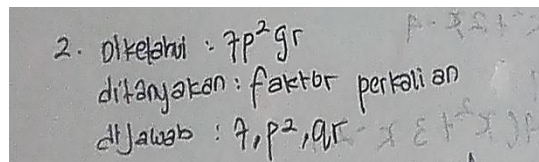 2. Diketahui : 7p²qr
ditanyakan : faktor perkalian
dijawab : 7, p², qr